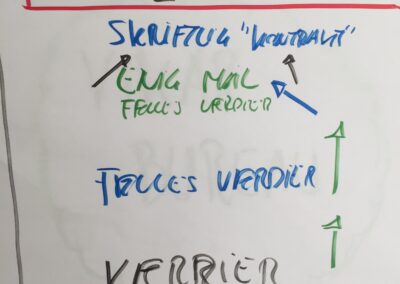 SKRIFTLIG "KONTRAKT"
ENIG MÅL
FELLES VERDIER
FELLES VERDIER
VERDIER